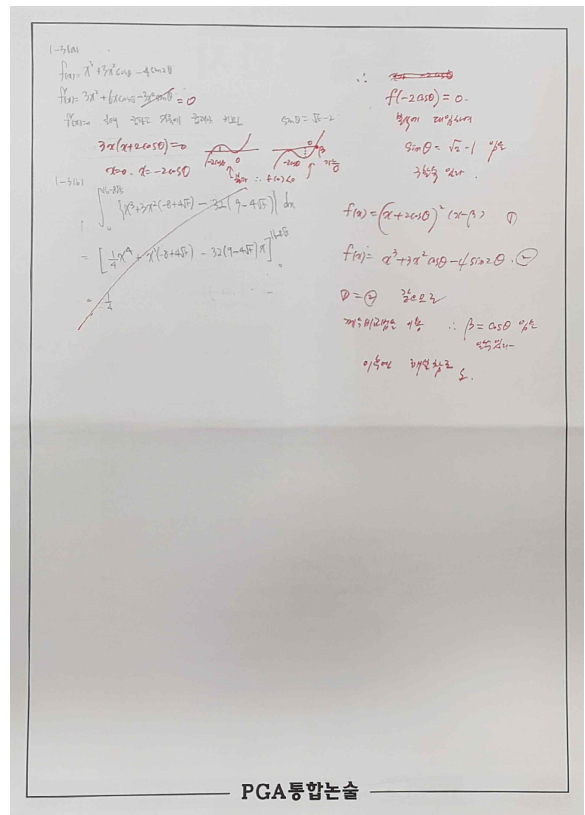 1-3(a)
f(x) = x³+3x²cosθ-4sin2θ
f'(x) = 3x²+6xcosθ = 0
f'(x)=0 sinθ = √2-2
3x(x+2cosθ)=0
x=0. x=-2cosθ
-2cosθ 0
∴ f(0)<0
-2cosθ 0 β
1-3(b)
{x³+3x²(-8+4√5) - 32(9-4√5)} dx
= [ ¼x⁴ + x³(-8+4√5) - 32(9-4√5)x ]
= ¼
∴
f(-2cosθ) = 0.
sinθ = √2-1 임을
구할 수 있다.
f(x) = (x+2cosθ)²(x-β) ①
f(x) = x³+3x²cosθ-4sin2θ. ②
① = ② 같으므로
계수비교법을 이용 ∴ β = cosθ 임을
알 수 있다.
이후엔 해설참조
PGA통합논술